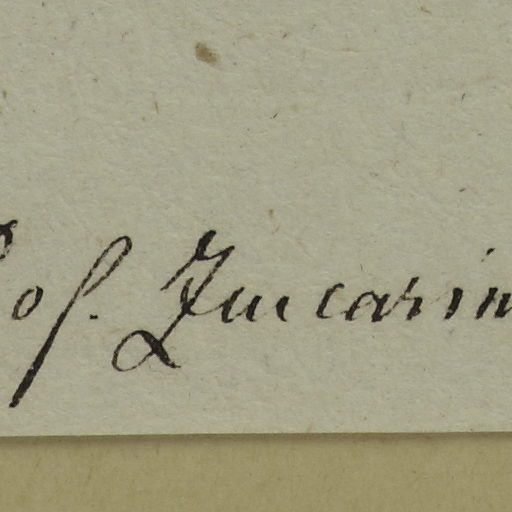 of. Zuccarin